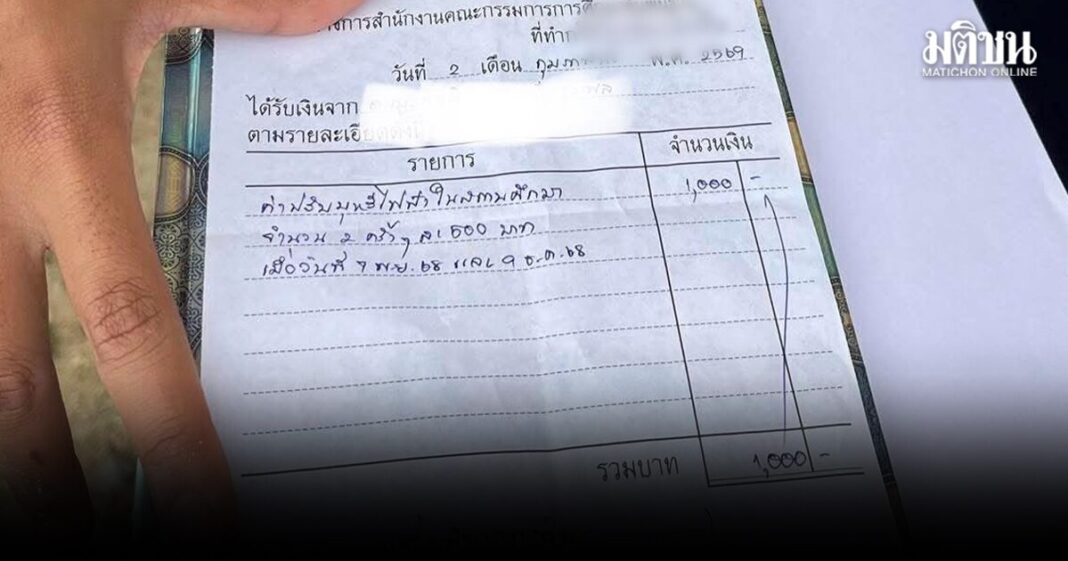 มติชน
MATICHON ONLINE
สำนักงานคณะกรรมการการ
ที่ทำ
วันที่ 2 เดือน กุมภา พ.ศ. 2569
ได้รับเงินจาก
ตามรายละเอียดดังนี้
รายการ จำนวนเงิน
ค่าปรับบุหรี่ไฟฟ้าในสถานศึกษา 1,000 -
จำนวน 2 ครั้ง ๆ ละ 500 บาท
เมื่อวันที่ 7 พ.ย. 68 และ 9 ธ.ค. 68
รวมบาท 1,000 -